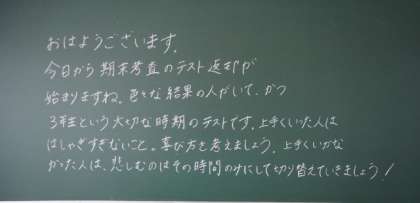 おはようございます。
今日から期末考査のテスト返却が
始まりますね。色々な結果の人がいて、かつ
3年生という大切な時期のテストです。上手くいった人は
はしゃぎすぎないこと。喜び方を考えましょう。上手くいかな
かった人は、悲しむのはその時間のみにして切り替えていきましょう!